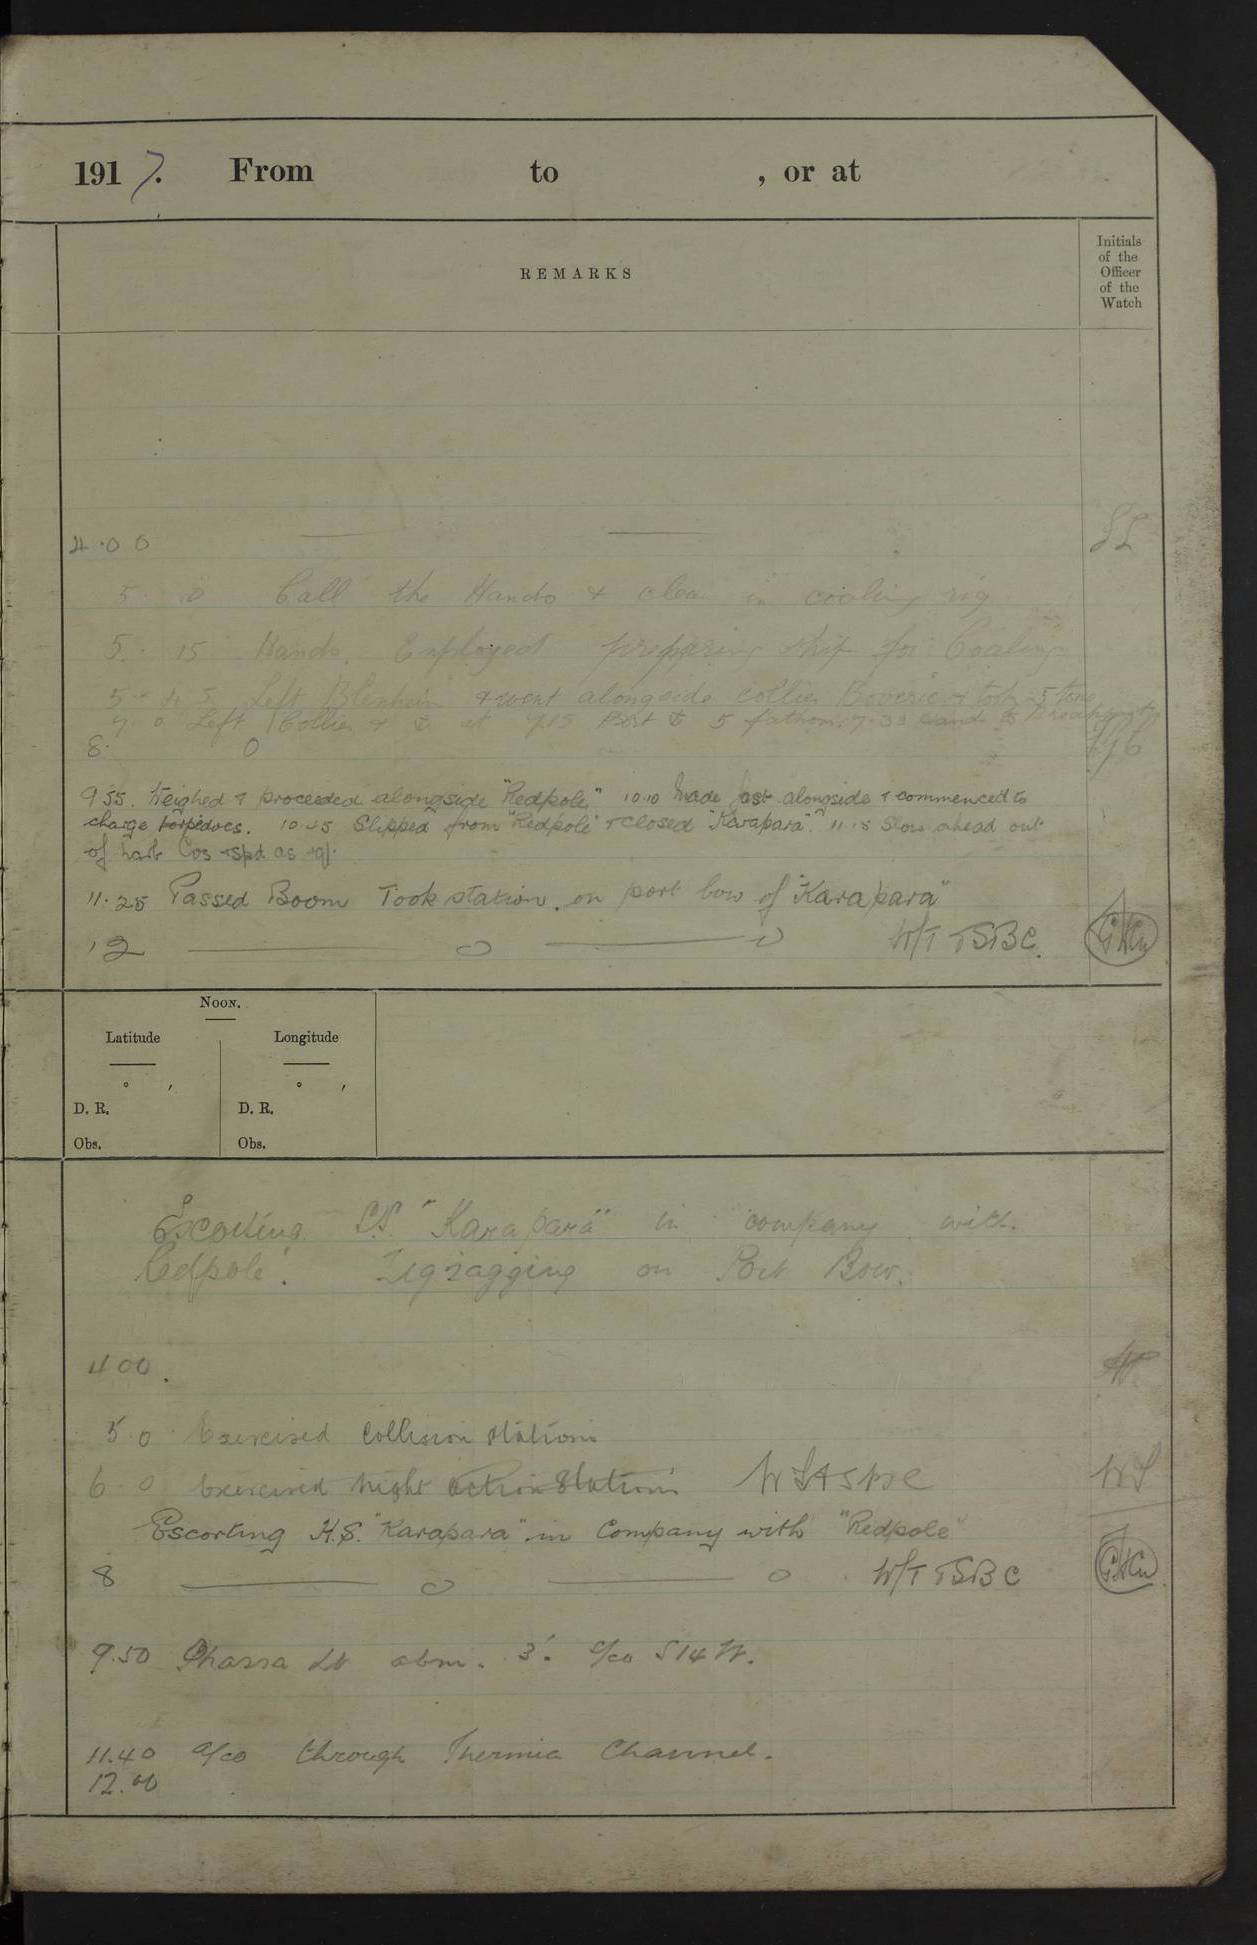 1917. From to , or at
REMARKS
Initials of the Officer of the Watch
4.00
5. 0 Call the Hands & clean in coaling rig
5. 15 Hands Employed preparing ship for Coaling
5. 45 Left Blenheim & went alongside collier Boveric &
7. 0 Left Collier & at 7.15 5 fathoms 7.30
8. 0
9.55. Weighed & proceeded alongside "Redpole" 10.10 Made fast alongside & commenced to
charge torpedoes. 10.45 Slipped from "Redpole" & closed "Karapara". Slow ahead out
of harb Cos & spd as
11.25 Passed Boom Took station on port bow of "Karapara"
12 — 0 — 0 W/T TSBC.
NOON.
Latitude Longitude
° ′ ° ′
D. R. D. R.
Obs. Obs.
Escorting "Karapara" in company with
Redpole. Zigzagging on Port Bow.
400.
5.0 Exercised Collision Stations
6 0 Exercised night action Stations
Escorting H.S. "Karapara" in Company with "Redpole"
8 — 0 — 0 W/T TSBC
9.50 Phassa Lt abm. 3'. a/co S14W.
11.40 a/co through Thermia Channel.
12.00